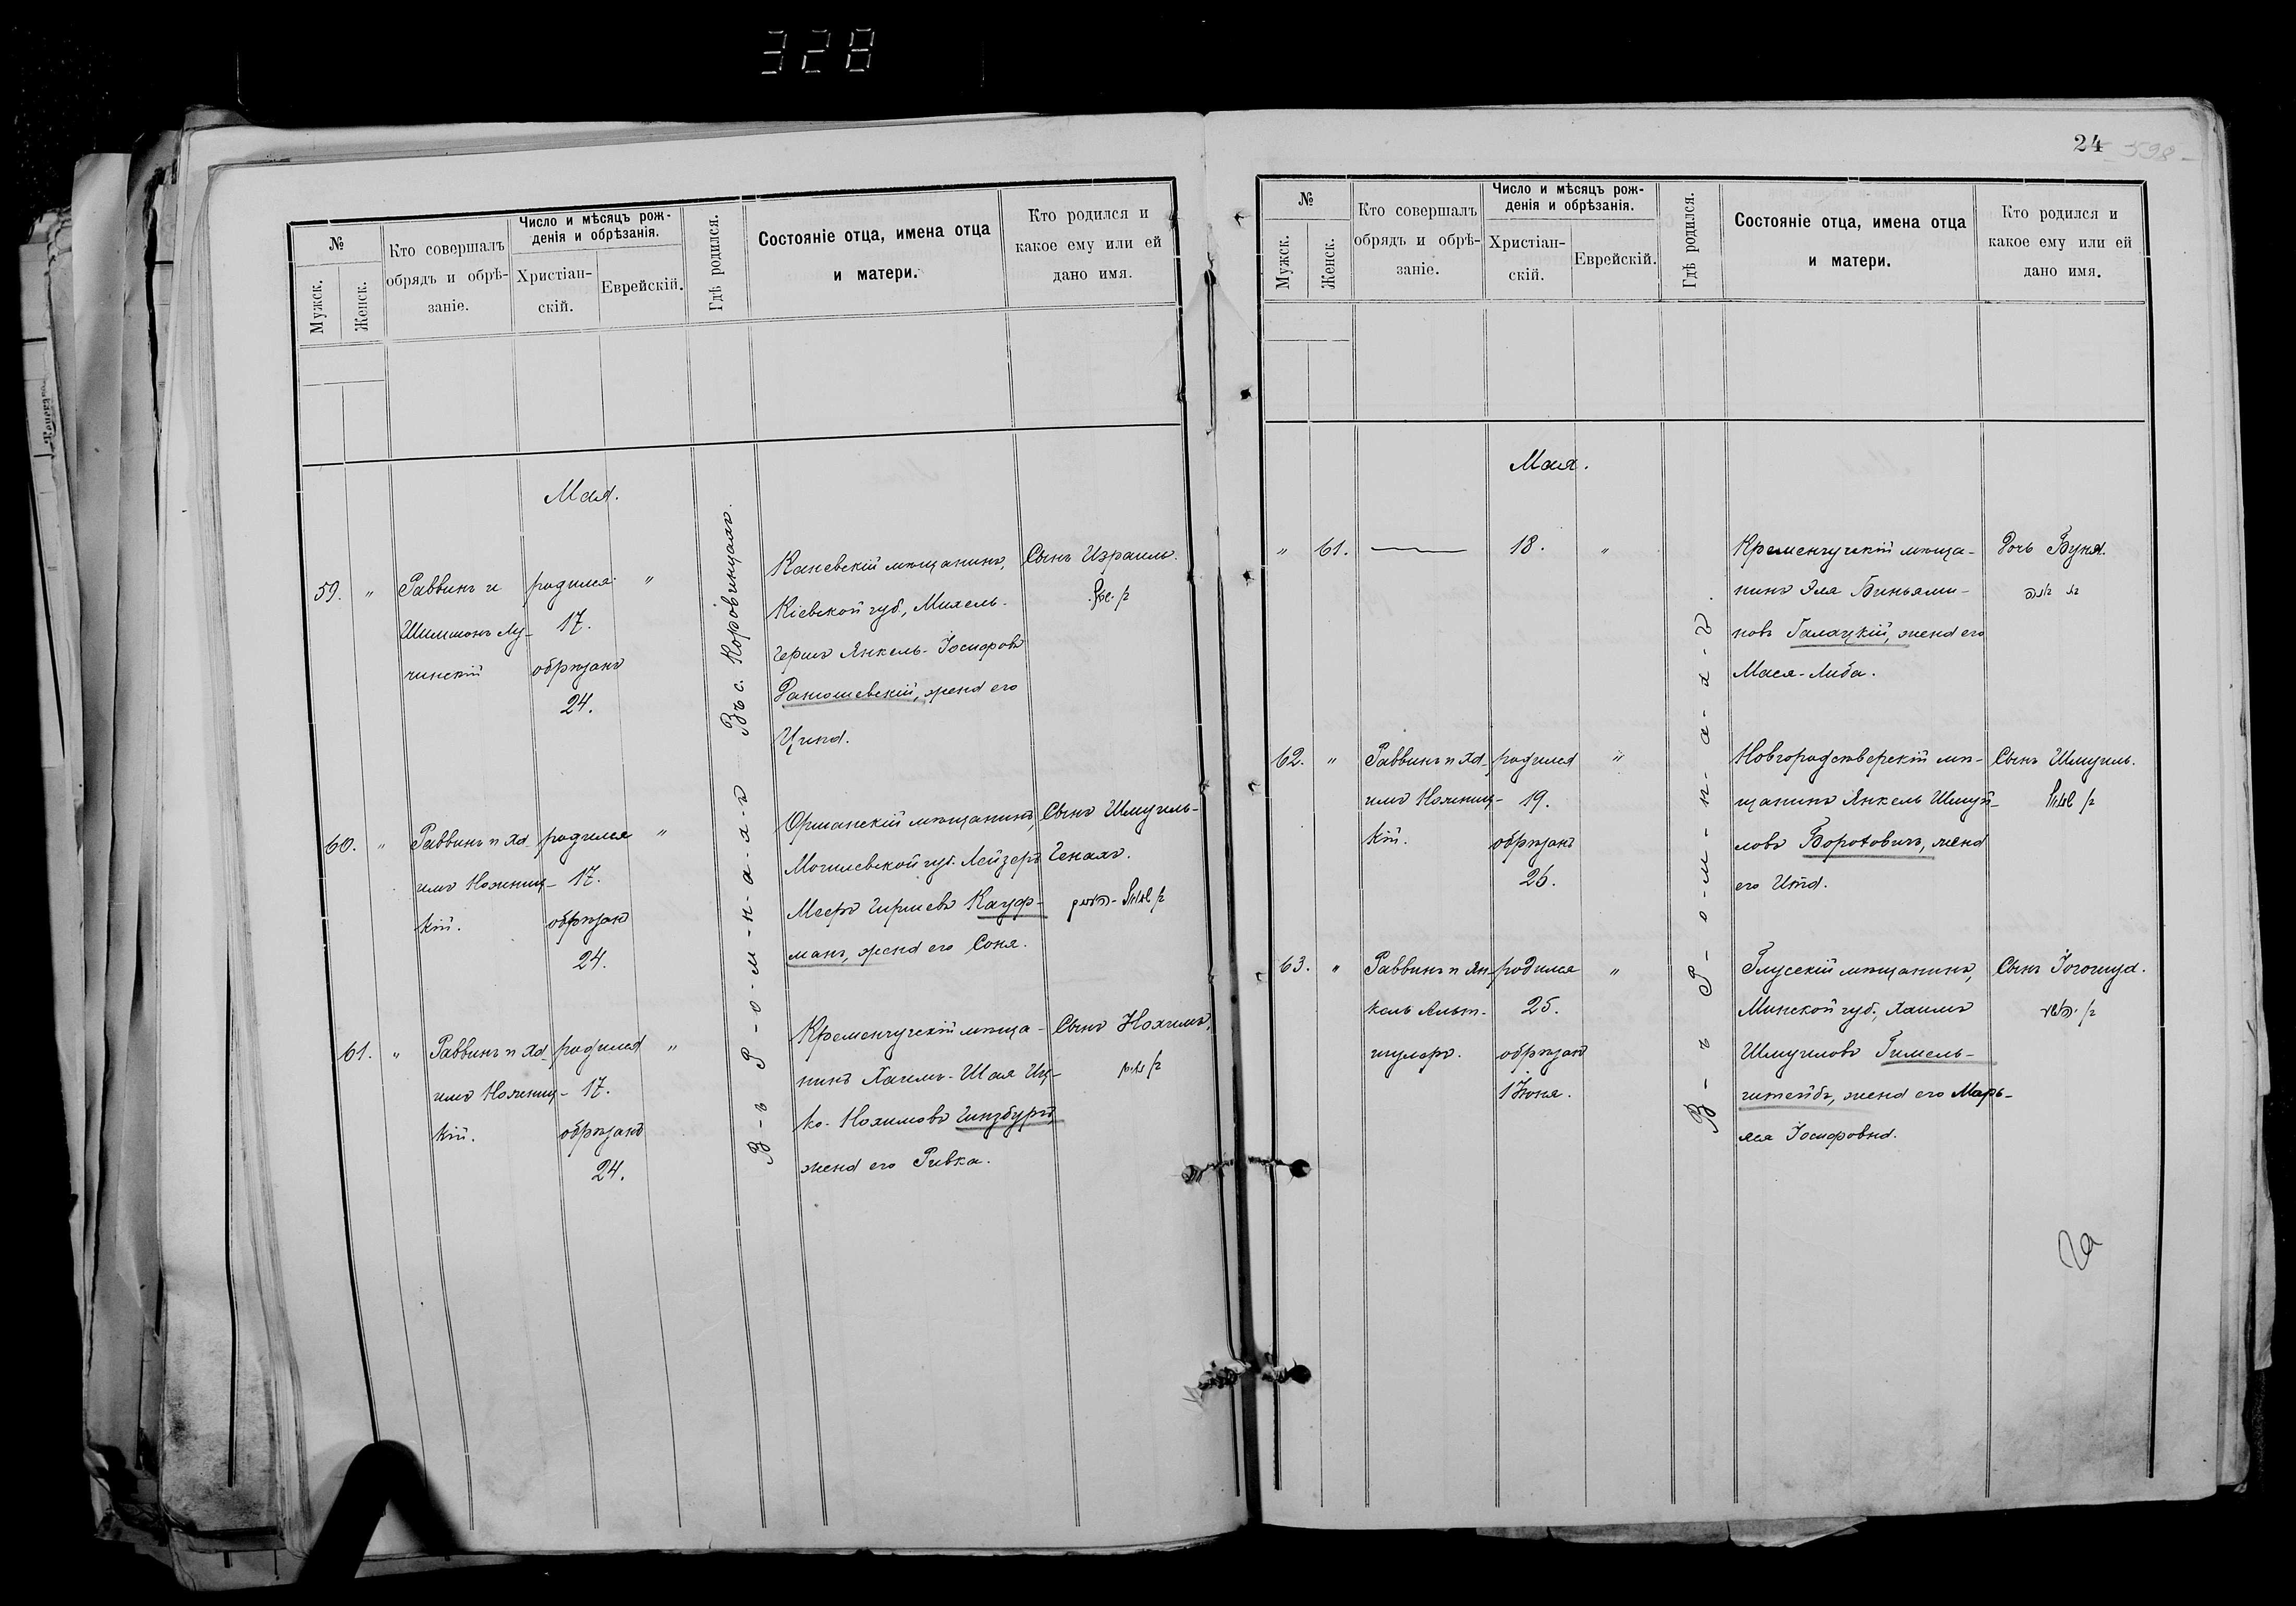 328
№
Мужск.
Женск.
Кто совершалъ
обрядъ и обрѣ-
заніе.
Число и мѣсяцъ рож-
денія и обрѣзанія.
Христіан-
скій.
Еврейскій.
Гдѣ родился.
Состояніе отца, имена отца
и матери.
Кто родился и
какое ему или ей
дано имя.
Мая.
Въ с. Коровинцахъ.
59. "
Раввинъ и
Шимшонъ Лу-
чинскій
родился "
17.
обрѣзанъ
24.
Каневскій мѣщанинъ,
Кіевской губ., Михель-
Гершъ Янкель-Іосифовъ
Данюшевскій, жена его
Ципа.
Сынъ Израиль.
В-ъ Р-о-м-н-а-х-ъ
60. "
Раввинъ и Ха-
имъ Ножниц-
кій.
родился "
17.
обрѣзанъ
24.
Оршанскій мѣщанинъ,
Могилевской губ. Лейзеръ
Мееръ Гиршевъ Кауф-
манъ, жена его Соня.
Сынъ Шмуиль-
Генахъ.
61. "
Раввинъ и Ха-
имъ Ножниц-
кій.
родился "
17.
обрѣзанъ
24.
Кременчугскій мѣща-
нинъ Хаимъ-Шая Иц-
ко-Нохимовъ Гинзбургъ,
жена его Ривка.
Сынъ Нохимъ.
בן נחום
24
598
№
Мужск.
Женск.
Кто совершалъ
обрядъ и обрѣ-
заніе.
Число и мѣсяцъ рож-
денія и обрѣзанія.
Христіан-
скій.
Еврейскій.
Гдѣ родился.
Состояніе отца, имена отца
и матери.
Кто родился и
какое ему или ей
дано имя.
Мая.
В-ъ Р-о-м-н-а-х-ъ.
" 61.
18. "
Кременчугскій мѣща-
нинъ Эля Биньями-
новъ Галацкій, жена его
Мася-Либа.
Дочь Буня.
62. "
Раввинъ и Ха-
имъ Ножниц-
кій.
родился "
19.
обрѣзанъ
26.
Новгородсѣверскій мѣ-
щанинъ Янкель Шмуй-
ловъ Боротовичъ, жена
его Ита.
Сынъ Шмуиль.
בן שמואל
63. "
Раввинъ и Ян-
кель Альт-
шулеръ.
родился "
25.
обрѣзанъ
1 Іюня.
Глусскій мѣщанинъ,
Минской губ., Хаимъ
Шмуиловъ Гимель-
читейбъ, жена его Марь-
яся Іосифовна.
Сынъ Іогошуа.